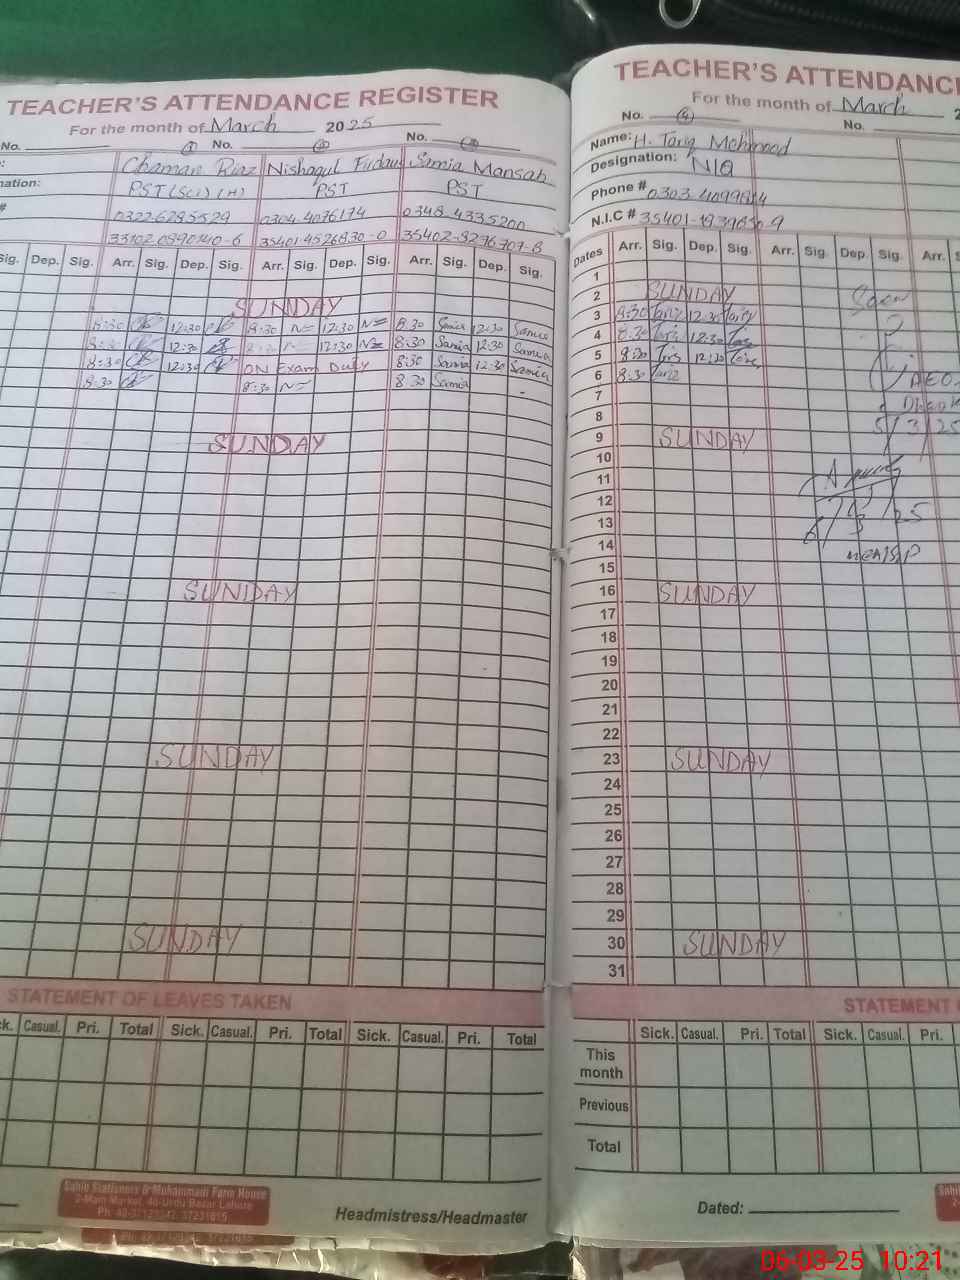 TEACHER'S ATTENDANCE REGISTER
For the month of March 2025
No. ① No. ② No. ③
Chaman Riaz Nishaqul Fudau Samia Mansab
nation: PST (Sci) (H) PST PST
# 03226285529 0304-4076174 0348-4335200
33102.0890140-6 35401-9526830-0 35402-8296707-8
Sig. Dep. Sig. Arr. Sig. Dep. Sig. Arr. Sig. Dep. Sig. Arr. Sig. Dep. Sig.
SUNDAY
8:30 12:30 8:30 12:30 8:30 Samia 12:30 Samia
8:30 12:30 8:30 12:30 8:30 Samia 12:30 Samia
8:30 12:30 ON Exam Duty 8:30 Samia 12:30 Samia
8:30 8:30 8:30 Samia -
SUNDAY
SUNDAY
SUNDAY
SUNDAY
STATEMENT OF LEAVES TAKEN
ck. Casual. Pri. Total Sick. Casual. Pri. Total Sick. Casual. Pri. Total
Sahip Stationers & Muhammadi Farm House
2-Main Market, 40-Urdu Bazar Lahore
Headmistress/Headmaster
TEACHER'S ATTENDANCE
For the month of March 2
No. ④ No.
Name: H. Tariq Mehmood
Designation: NIQ
Phone # 0303-4099814
N.I.C # 35401-1839830-9
Dates Arr. Sig. Dep. Sig. Arr. Sig. Dep. Sig. Arr. S
1
2 SUNDAY Seen
3 8:30 Tariq 12:30 Tariq
4 8:30 Tariq 12:30 Tariq
5 8:30 Tariq 12:30 Tariq
6 8:30 Tariq AEO
7
8 5/3/25
9 SUNDAY
10
11
12
13 6/3/25
14
15
16 SUNDAY
17
18
19
20
21
22
23 SUNDAY
24
25
26
27
28
29
30 SUNDAY
31
STATEMENT
Sick. Casual. Pri. Total Sick. Casual. Pri.
This month
Previous
Total
Dated:
06-03-25 10:21